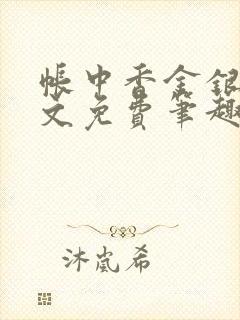 帐中香金银
文免费笔趣
沐岚希